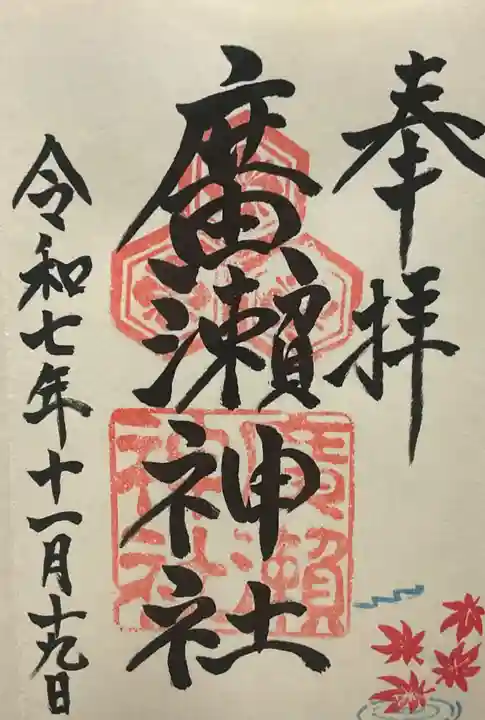 奉拝
廣瀬神社
令和七年十一月十九日
廣瀬
神社